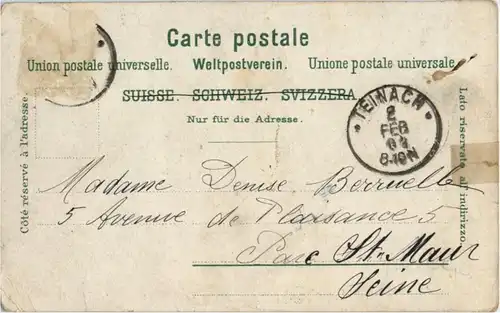 Carte postale
Union postale universelle. Weltpostverein. Unione postale universale.
SUISSE. SCHWEIZ. SVIZZERA
Nur für die Adresse.
Côté réservé à l'adresse.
Lato riservato all' indirizzo.
TEINACH
2
FEB
8-10 N
Madame Denise Berruelle
5 Avenue de Plaisance 5
Parc St-Maur
Seine